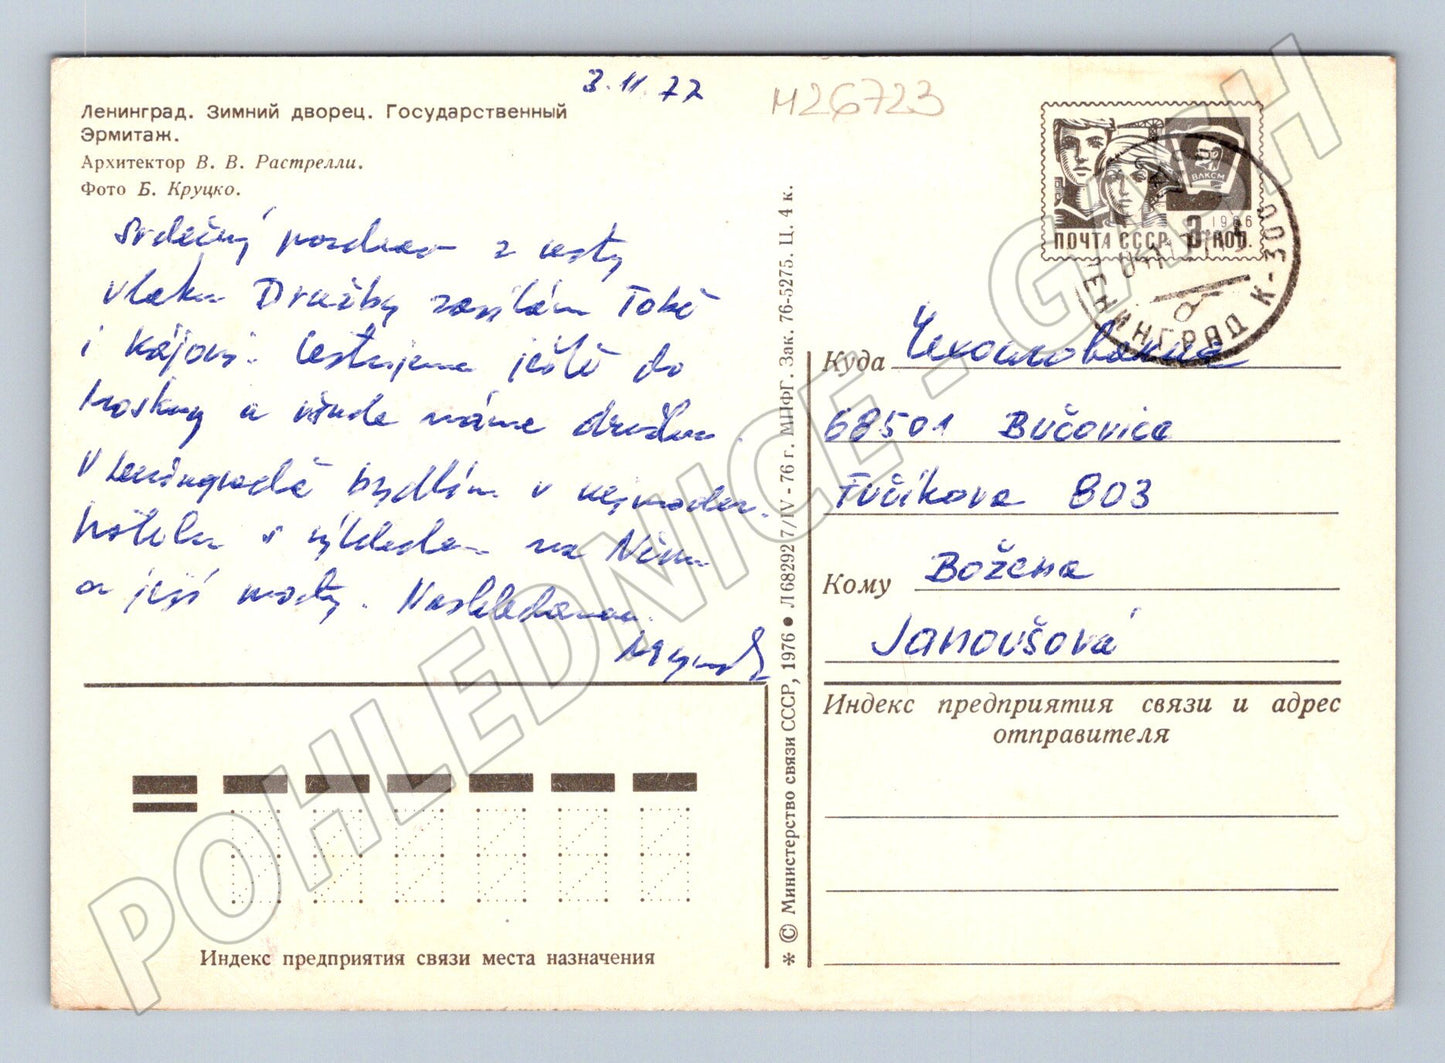 3.11.77
M26723
Ленинград. Зимний дворец. Государственный
Эрмитаж.
Архитектор В. В. Растрелли.
Фото Б. Круцко.
Srdečný pozdrav z cesty
vlaku Družby zasílám Tobě
i Kájovi. Cestujeme ještě do
Moskvy a všude máme družbu.
V Leningradě bydlím v nejmoder.
hotelu s výhledem na Něvu
a její mosty. Nashledanou
ВЛКСМ
1966
ПОЧТА СССР 3 КОП.
ЛЕНИНГРАД К-300
д
Куда Чехословакиа
68501 Bučovice
Fučíkova 803
Кому Božena
Janoušová
Индекс предприятия связи и адрес
отправителя
Индекс предприятия связи места назначения
* © Министерство связи СССР, 1976 ● Л68292 7/IV-76 г. МПФГ. Зак. 76-5275. Ц. 4 к.
POHLEDNICE - GASH